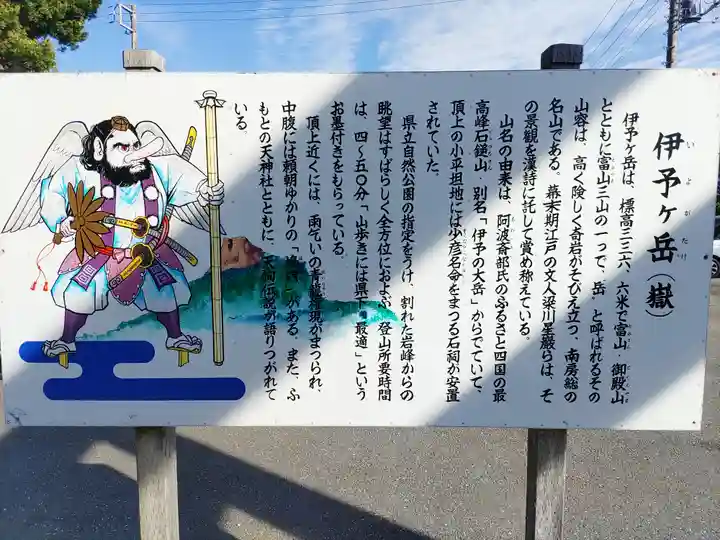 伊予ヶ岳(嶽)
いよがたけ
伊予ヶ岳は、標高三三六、六米で富山・御殿山
とともに富山三山の一つで、“岳”と呼ばれるその
山容は、高く険しく奇岩がそびえ立つ、南房総の
名山である。幕末期江戸の文人梁川星巌らは、そ
の景観を漢詩に託して賞め称えている。
山名の由来は、阿波斎部氏のふるさと四国の最
高峰石鎚山 別名「伊予の大岳」からでていて、
頂上の小平坦地には少彦名命をまつる石祠が安置
されていた。
県立自然公園の指定をうけ、割れた岩峰からの
眺望はすばらしく全方位におよぶ。登山所要時間
は、四〜五〇分「山歩きには県下最適」という
お墨付きをもらっている。
頂上近くには、雨乞いの青龍権現がまつられ、
中腹には頼朝ゆかりの「」がある。また、ふ
もとの天神社とともに、天狗伝説が語りつがれて
いる。